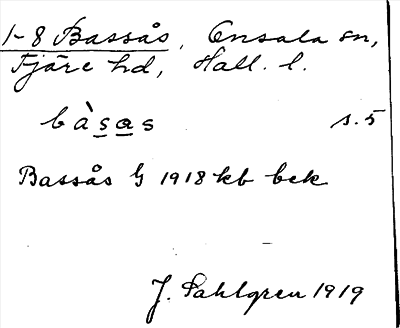 1-8 Bassås, Onsala sn,
Fjäre hd, Hall. l.
bàsas s. 5
Bassås G 1918 kb bek
J. Sahlgren 1919